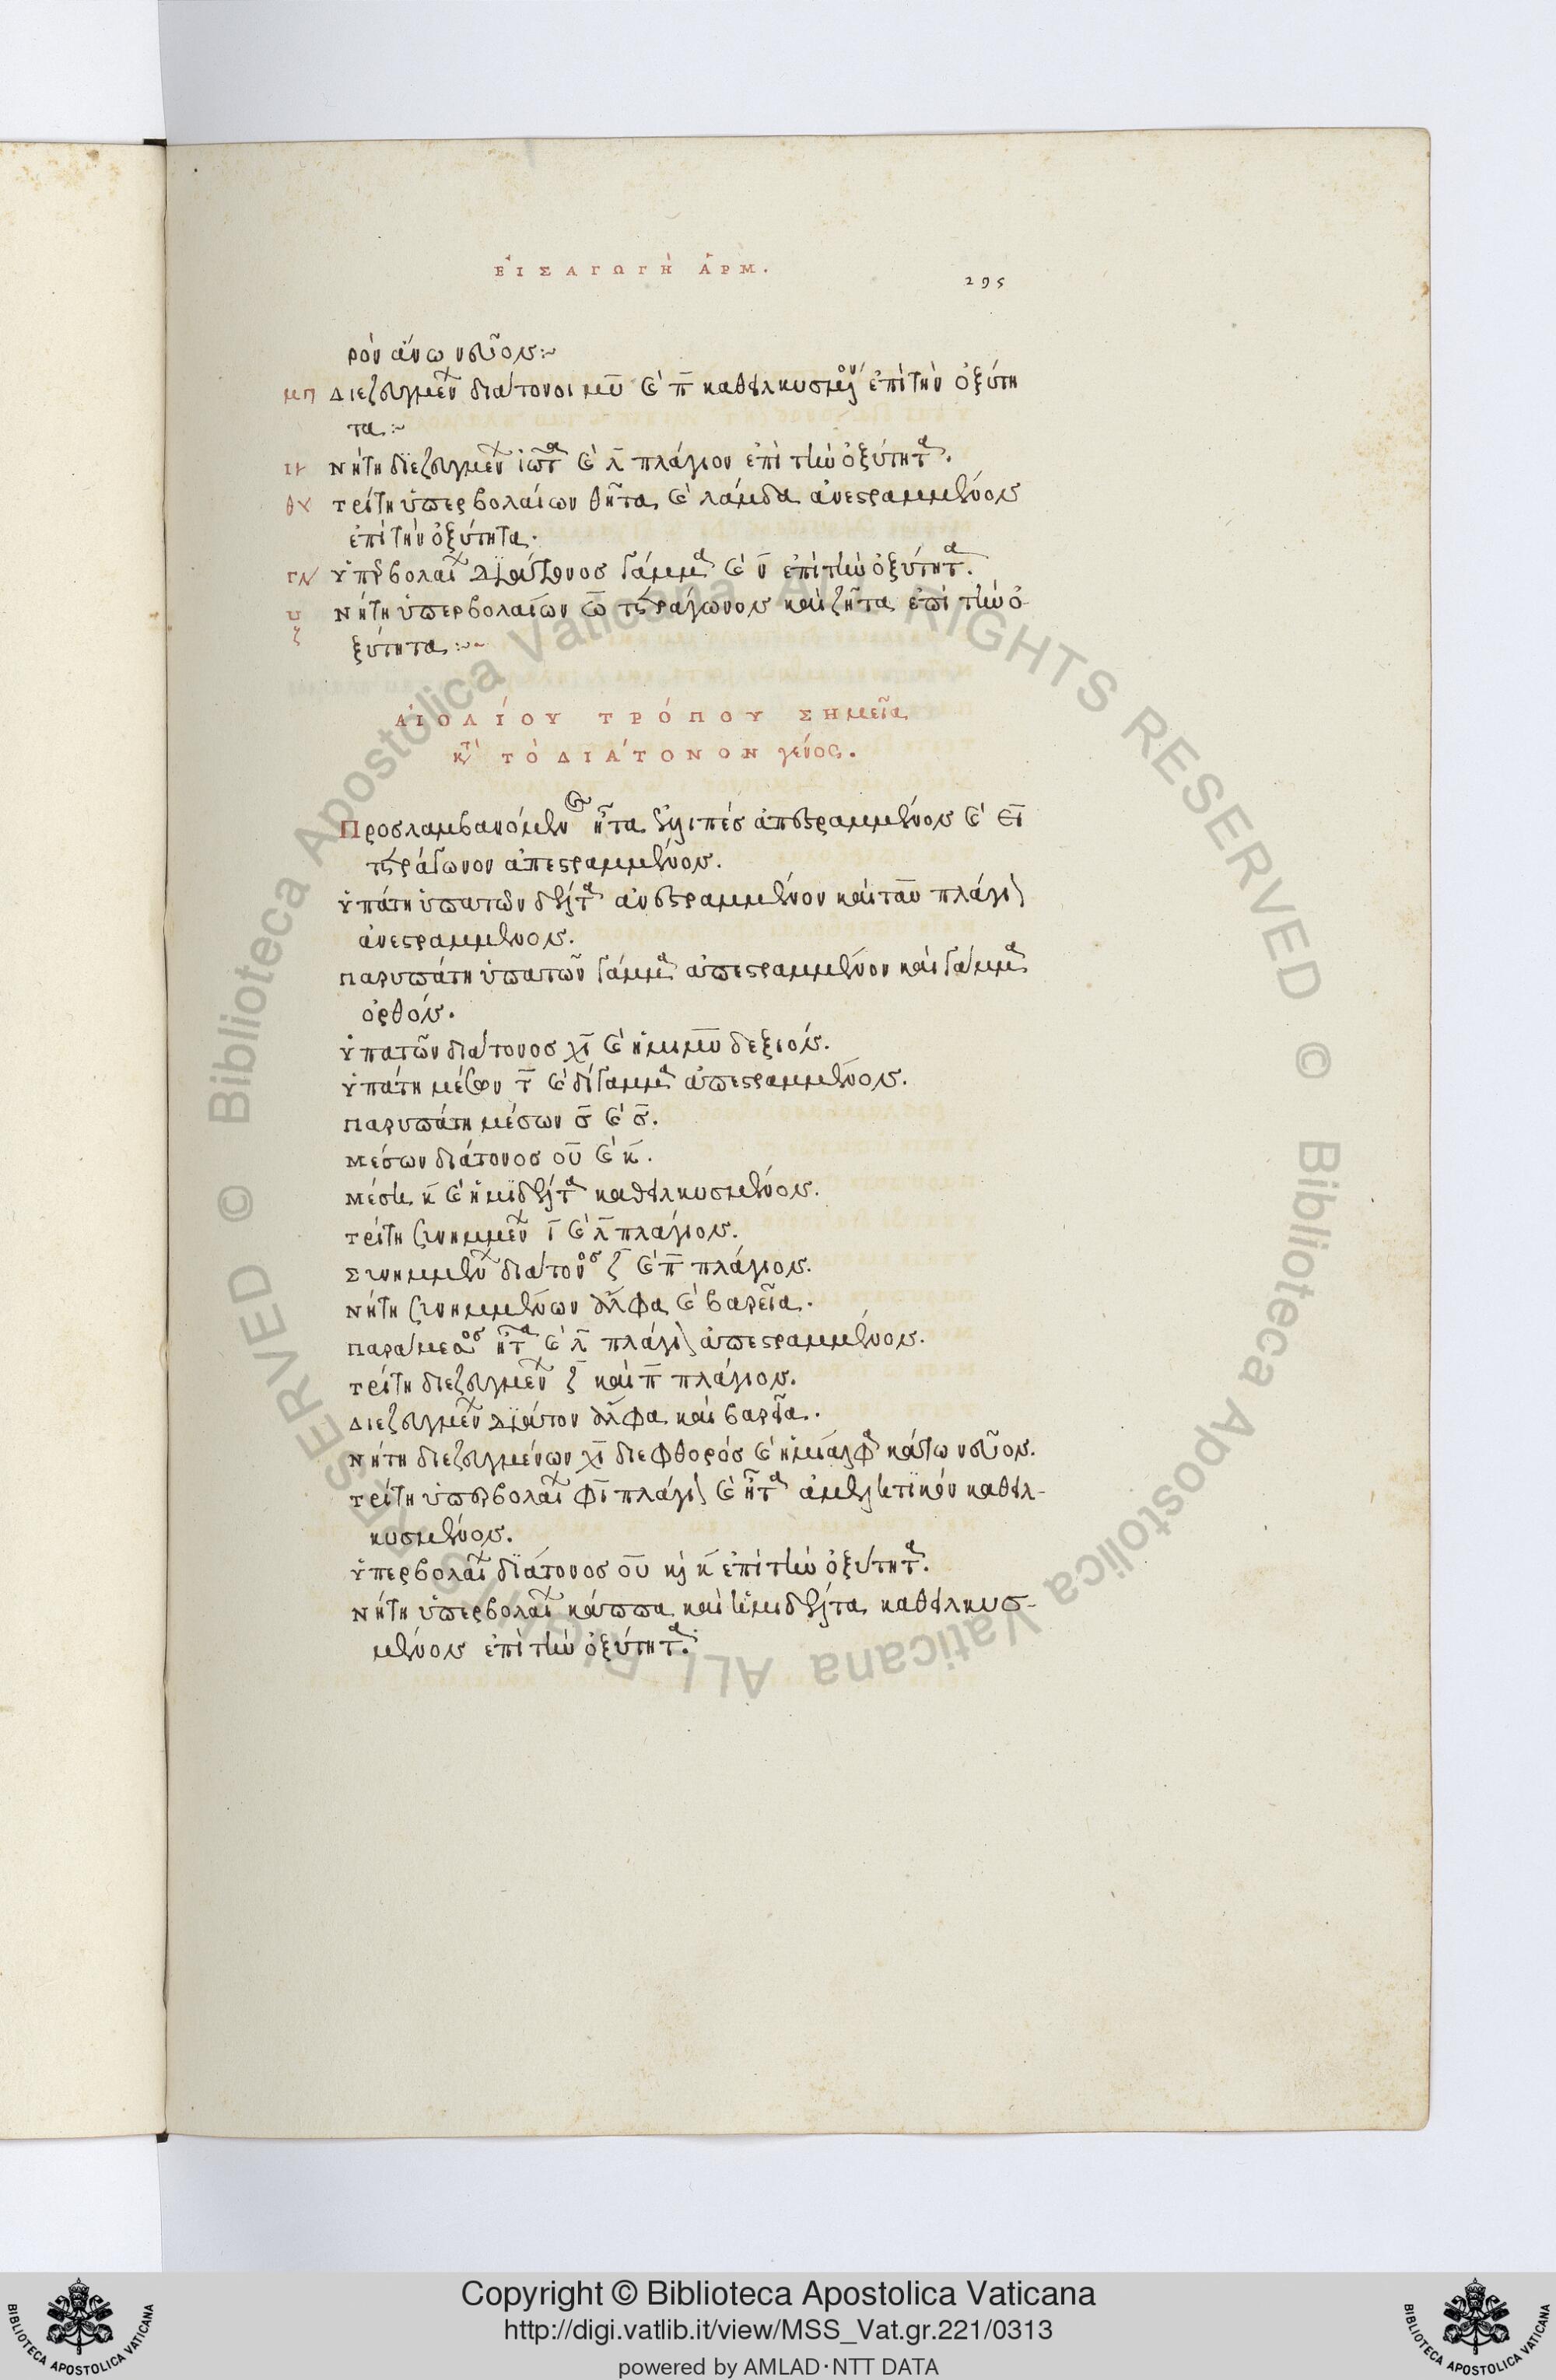 ΕἸΣΑΓΩΓῊ ἉΡΜ.
295
ρὸν ἄνω νεῦον :~
μπ Διεζευγμέν διάτονοι μῦ καὶ π καθειλκυσμένον ἐπὶ τὴν ὀξύτη
τα :~
Νήτη διεζευγμέν ἰῶτα καὶ λ πλάγιον ἐπὶ τὴν ὀξύτητα.
Τρίτη ὑπερβολαίων θῆτα καὶ λάμδα ἀνεστραμμένον
ἐπὶ τὴν ὀξύτητα.
γν Ὑπερβολαί διάτονος γάμμα καὶ ν ἐπὶ τὴν ὀξύτητα.
Νήτη ὑπερβολαίων ω τετράγωνον καὶ ζῆτα ἐπὶ τὴν ὀ-
ζ
ξύτητα :~
ΑἸΟΛΊΟΥ ΤΡΌΠΟΥ ΣΗμεῖα
κτ ΤῸ ΔΙΆΤΟΝΟΝ γένος.
Προσλαμβανόμεν ἦτα ἐλλιπὲς ἀπεστραμμένον καὶ εἶ
τετράγωνον ἀπεστραμμένον.
Ὑπάτη ὑπατῶν δέλτα ἀνεστραμμένον καὶ ταῦ πλάγι
ἀνεστραμμένον.
Παρυπάτη ὑπατῶν γάμμα ἀπεστραμμένον καὶ γάμμα
ὀρθόν.
Ὑπατῶν διάτονος χῖ καὶ ἡμιμυ δεξιόν.
Ὑπάτη μέσων τ καὶ δίγαμμα ἀπεστραμμένον.
Παρυπάτη μέσων σ καὶ σ.
Μέσων διάτονος οῦ καὶ κ.
Μέση κ καὶ ἡμιδέλτα καθειλκυσμένον.
Τρίτη συνημμέν ι καὶ λ πλάγιον.
Συνημμέν διάτονος ζ καὶ π πλάγιον.
Νήτη συνημμένων ἄλφα καὶ βαρεῖα.
Παράμεσος ἦτα καὶ λ πλάγι ἀπεστραμμένον.
Τρίτη διεζευγμέν ζ καὶ π πλάγιον.
Διεζευγμέν διάτον ἄλφα καὶ βαρεῖα.
Νήτη διεζευγμένων χῖ διεφθορός καὶ ἡμίαλφα κάτω νεῦον.
Τρίτη ὑπερβολαί φῖ πλάγι καὶ ἦτα ἀμελητικὸν καθειλ-
κυσμένον.
Ὑπερβολαί διάτονος οῦ καὶ κ ἐπὶ τὴν ὀξύτητα.
Νήτη ὑπερβολαί κάππα καὶ ἡμιδέλτα καθειλκυσ-
μένον ἐπὶ τὴν ὀξύτητα.
Copyright © Biblioteca Apostolica Vaticana
http://digi.vatlib.it/view/MSS_Vat.gr.221/0313
powered by AMLAD·NTT DATA